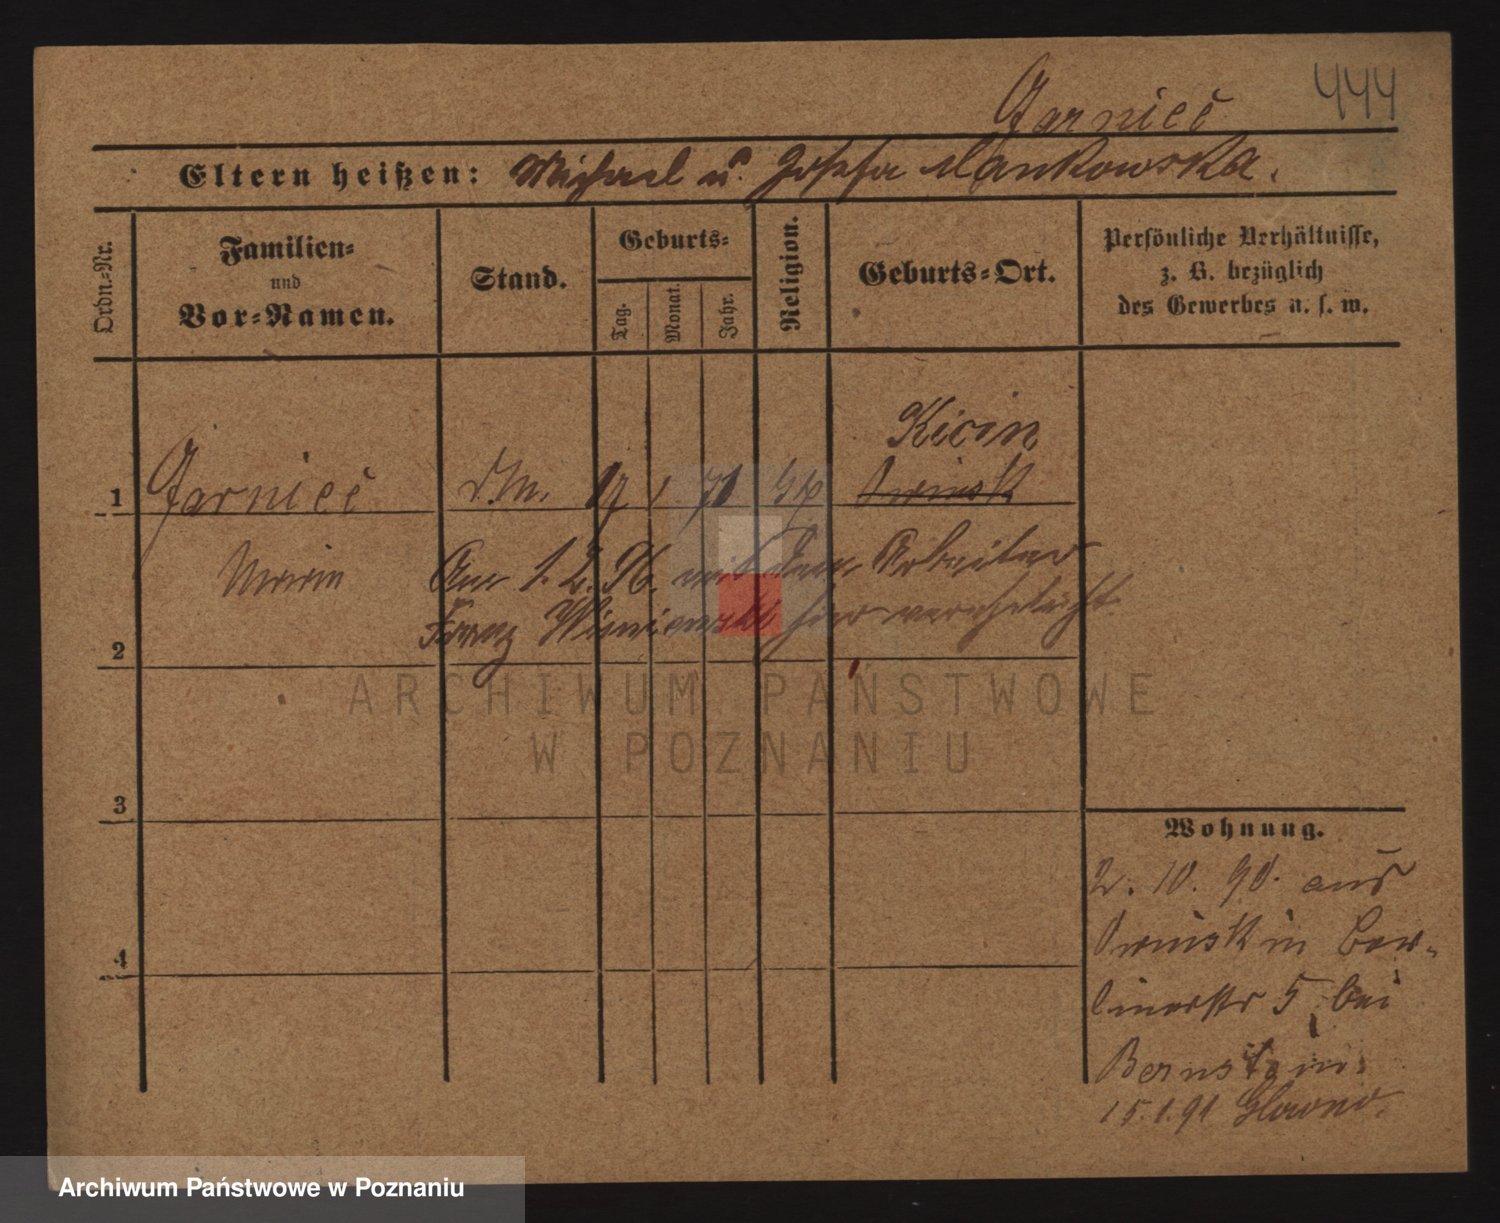 444
Jarnieć
Eltern heißen: Michael u. Josefa Mankowska.
Ordn.-Nr.
Familien-
und
Vor-Namen.
Stand.
Geburts-
Tag.
Monat.
Jahr.
Religion.
Geburts-Ort.
Persönliche Verhältnisse,
z. B. bezüglich
des Gewerbes u. s. w.
Kicin
1 Jarnieć d.M. 1 71
Am 1. 2. 96. mit dem Arbeiter
Franz hier verehelicht
2
ARCHIWUM PAŃSTWOWE
W POZNANIU
3
Wohnung.
2. 10. 90. aus
in Ber-
linerstr 5, bei
4
Bernstein.
15.1.91 Glowno.
Archiwum Państwowe w Poznaniu